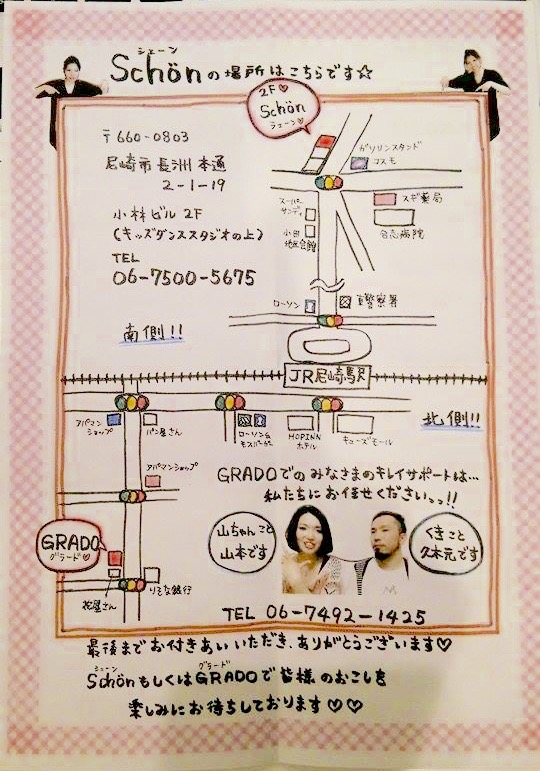 シェーン
Schönの場所はこちらです☆
2F♡
Schön
シェーン♡
〒660-0803
尼崎市長洲本通
2-1-19
小林ビル 2F
(キッズダンススタジオの上)
TEL
06-7500-5675
南側!!
ガソリンスタンド
コスモ
スーパー
サンディ
スギ薬局
小田
地区会館
合志病院
ローソン
東警察署
JR尼崎駅
北側!!
アパマン
ショップ
パン屋さん
ローソン&
モスバーガー
HOPINN
ホテル
キューズモール
アパマンショップ
GRADOでのみなさまのキレイサポートは…
私たちにお任せくださいっっ!!
GRADO
グラード♡
山ちゃんこと
山本です
くきこと
久木元です
花屋さん
りそな銀行
TEL 06-7492-1425
最後までお付きあいいただき、ありがとうございます♡
シェーン
グラード
SchönもしくはGRADOで皆様のおこしを
楽しみにお待ちしております♡♡